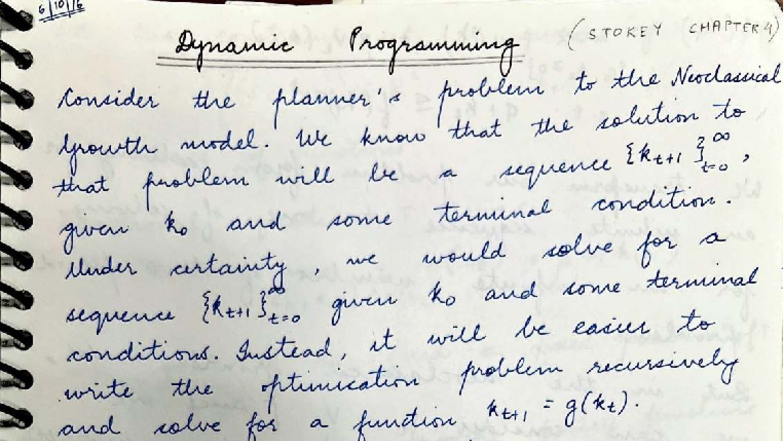 6/10/16
Dynamic Programming (STOKEY CHAPTER 4)
Consider the planner's problem to the Neoclassical
Growth model. We know that the solution to
that problem will be a sequence {k_{t+1}}_{t=0}^∞,
given k₀ and some terminal condition.
Under certainty, we would solve for a
sequence {k_{t+1}}_{t=0}^∞ given k₀ and some terminal
conditions. Instead, it will be easier to
write the optimization problem recursively
and solve for a function k_{t+1} = g(k_t).